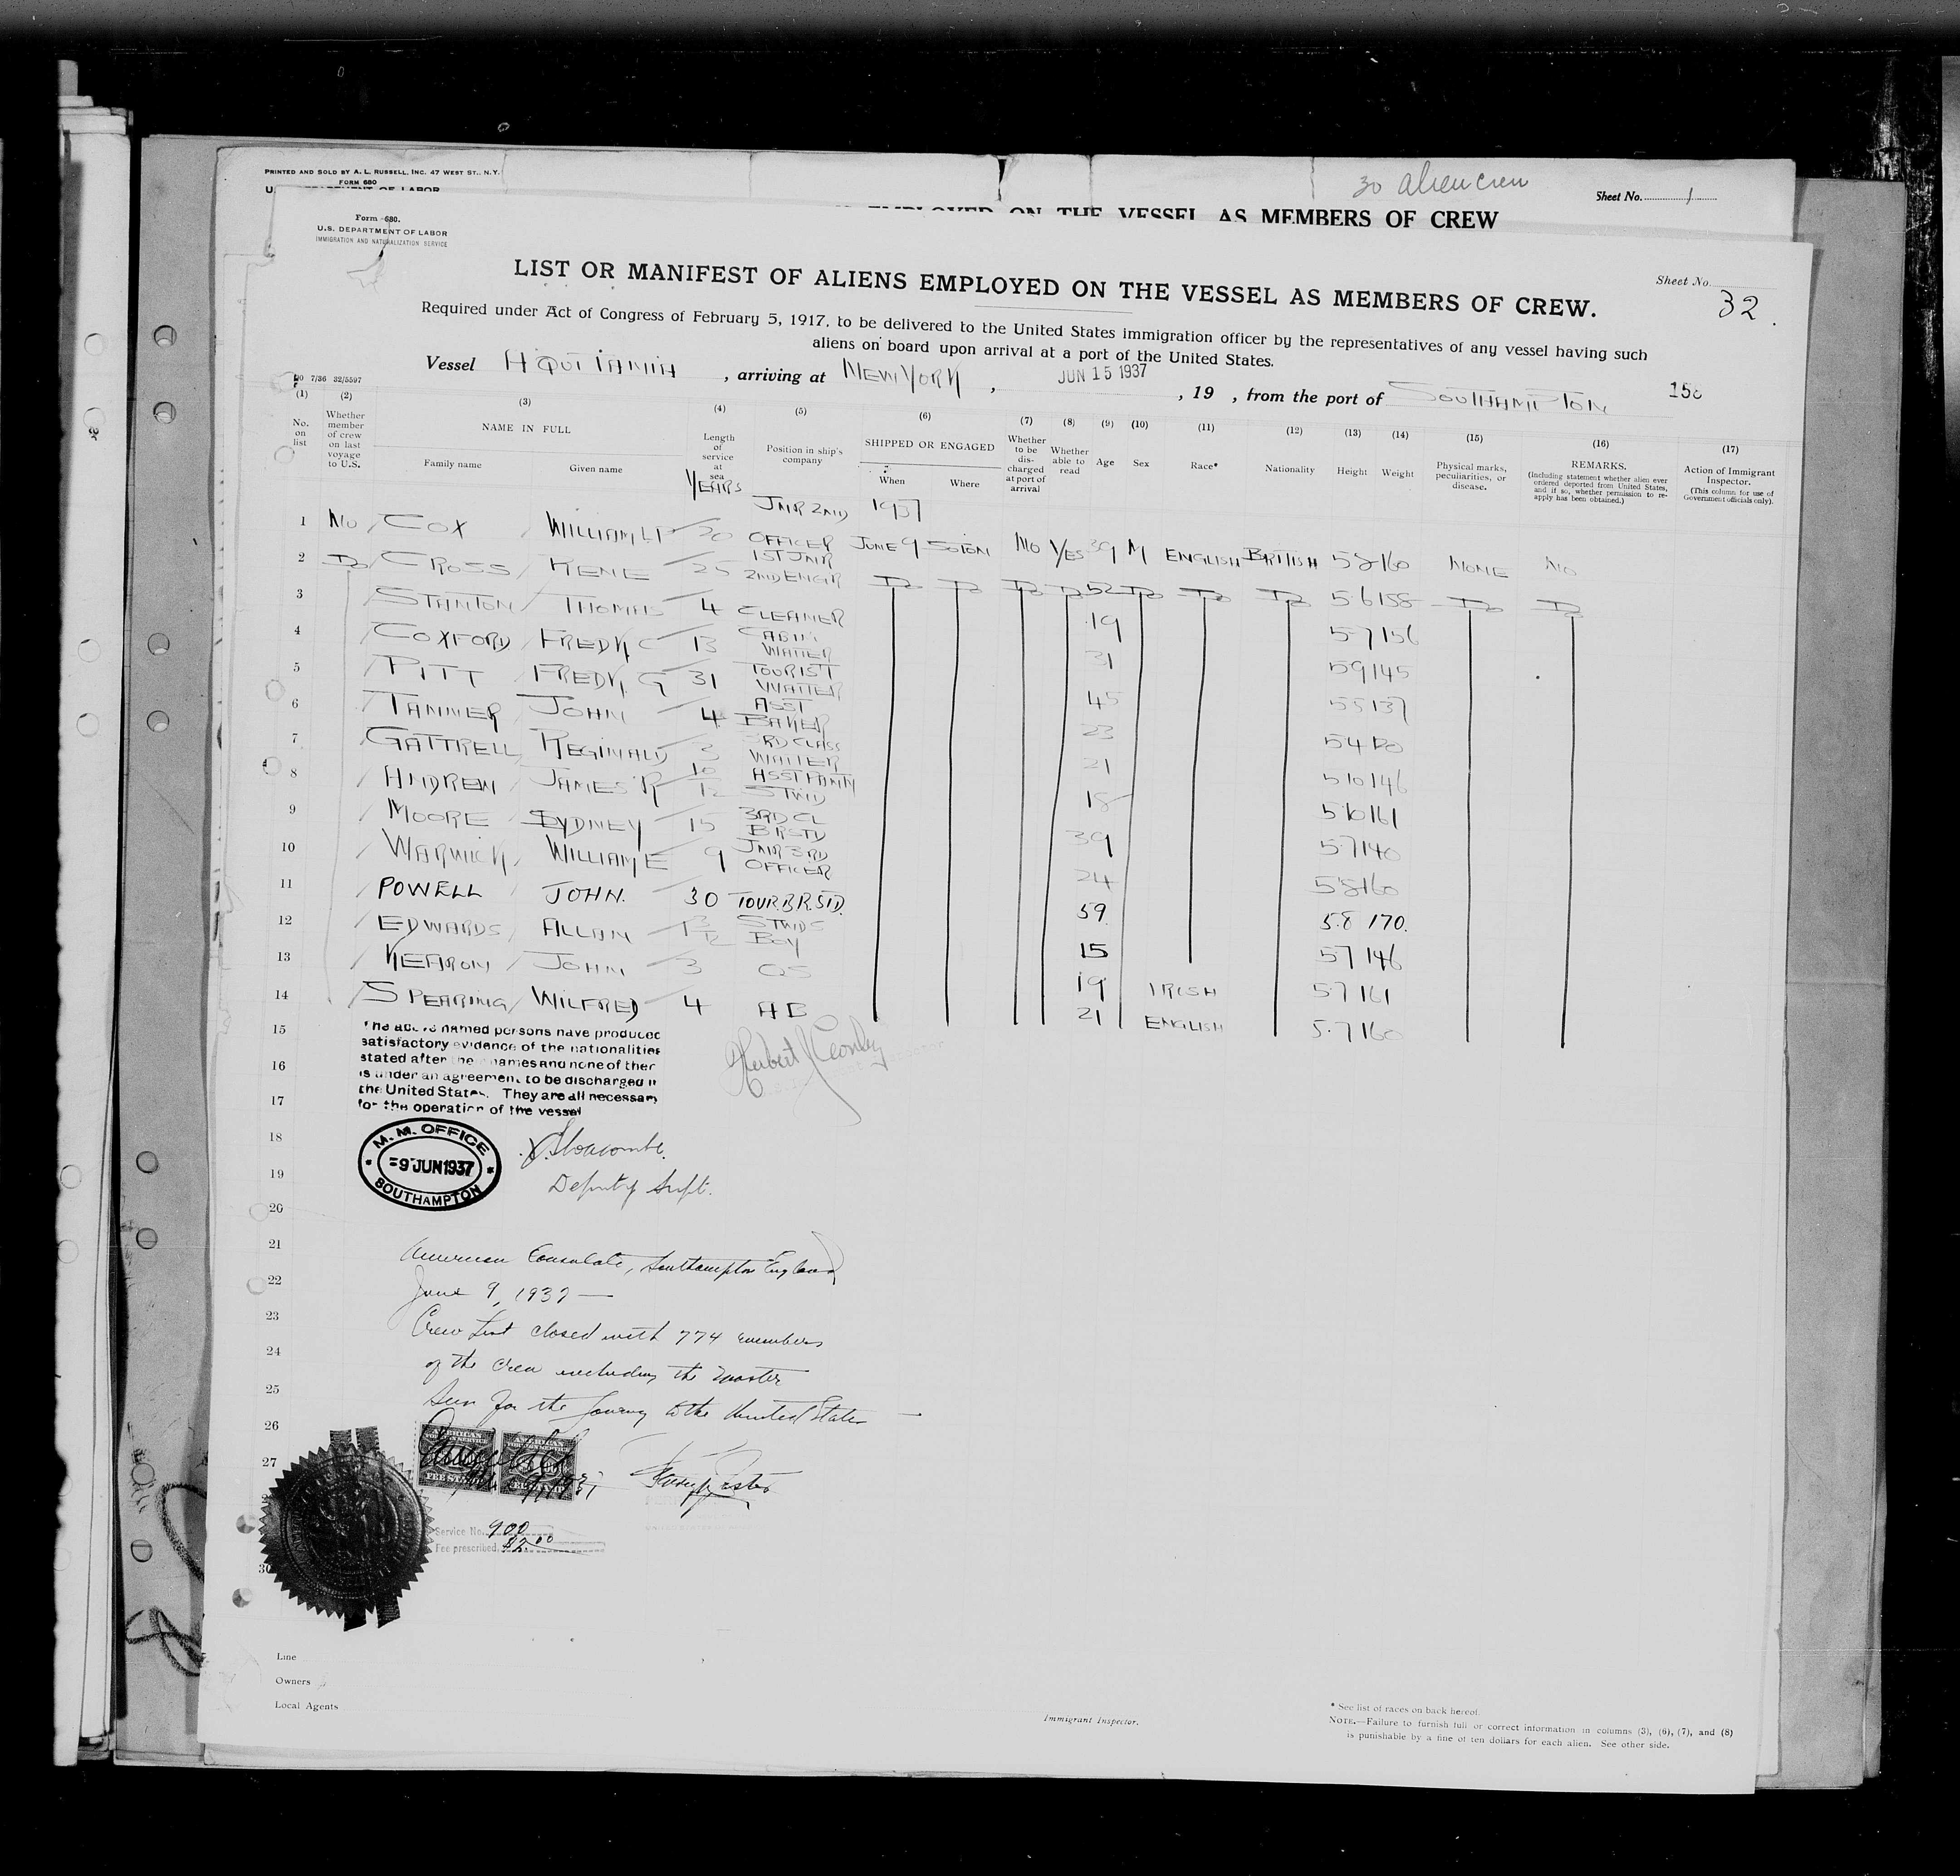 PRINTED AND SOLD BY A. L. RUSSELL, INC. 47 WEST ST., N.Y.
FORM 680
30 alien crew
Sheet No. 1
ON THE VESSEL AS MEMBERS OF CREW
Form 680.
U.S. DEPARTMENT OF LABOR
IMMIGRATION AND NATURALIZATION SERVICE
LIST OR MANIFEST OF ALIENS EMPLOYED ON THE VESSEL AS MEMBERS OF CREW.
Sheet No. 32.
Required under Act of Congress of February 5, 1917, to be delivered to the United States immigration officer by the representatives of any vessel having such
aliens on board upon arrival at a port of the United States.
Vessel AQUITANIA, arriving at NEW YORK, JUN 15 1937, 19 , from the port of SOUTHAMPTON
7/36 32/5597
(1) No. on list
(2) Whether member of crew on last voyage to U.S.
(3) NAME IN FULL Family name Given name
(4) Length of service at sea YEARS
(5) Position in ship's company
(6) SHIPPED OR ENGAGED When Where
(7) Whether to be discharged at port of arrival
(8) Whether able to read
(9) Age
(10) Sex
(11) Race*
(12) Nationality
(13) Height
(14) Weight
(15) Physical marks, peculiarities, or disease.
(16) REMARKS. (Including statement whether alien ever ordered deported from United States, and if so, whether permission to re-apply has been obtained.)
(17) Action of Immigrant Inspector. (This column for use of Government officials only).
JNR 2ND 1937
1 NO COX WILLIAM 20 OFFICER JUNE 9 SOTON NO YES 39 M ENGLISH BRITISH 5 8 160 NONE NO
2 DO CROSS RENE 25 1ST JNR 2ND ENGR DO DO DO DO 52 DO DO DO 5 6 158 DO DO
3 STANTON THOMAS 4 CLEANER 19 5 7 156
4 COXFORD FREDK C 13 CABIN WAITER 31 5 9 145
5 PITT FREDK. G 31 TOURIST WAITER 45 5 5 137
6 TANNER JOHN 4 ASST BAKER 23 5 4 120
7 GATTRELL REGINALD 3 3RD CLASS WAITER 21 5 10 146
8 ANDREW JAMES R 10/12 ASST PANTRY STWD 18 5 10 161
9 MOORE SYDNEY 15 3RD CL BRSTD 39 5 7 140
10 WARWICK WILLIAM E 9 JNR 3RD OFFICER 24 5 8 160
11 POWELL JOHN. 30 TOUR.B.R.STD. 59. 5.8 170.
12 EDWARDS ALLAN STWDS BOY 15 5 7 146
13 KEARON JOHN 3 OS 19 IRISH 5 7 161
14 SPEARING WILFRED 4 AB 21 ENGLISH 5.7 160
15
16
17
18
19
20
21
22
23
24
25
26
27
30
The above named persons have produced
satisfactory evidence of the nationalities
stated after the names and none of them
is under an agreement to be discharged in
the United States. They are all necessary
for the operation of the vessel
M. M. OFFICE
9 JUN 1937
SOUTHAMPTON
Deputy Supt.
American Consulate, Southampton England
June 9, 1937 —
Crew List closed with 774 members
of the crew including the master
Seen for the journey to the United States —
AMERICAN
FOREIGN SERVICE
FEE STAMP
AMERICAN
Service No. 900
Fee prescribed, $2.00
Line
Owners
Local Agents
Immigrant Inspector.
* See list of races on back hereof.
NOTE.—Failure to furnish full or correct information in columns (3), (6), (7), and (8)
is punishable by a fine of ten dollars for each alien. See other side.